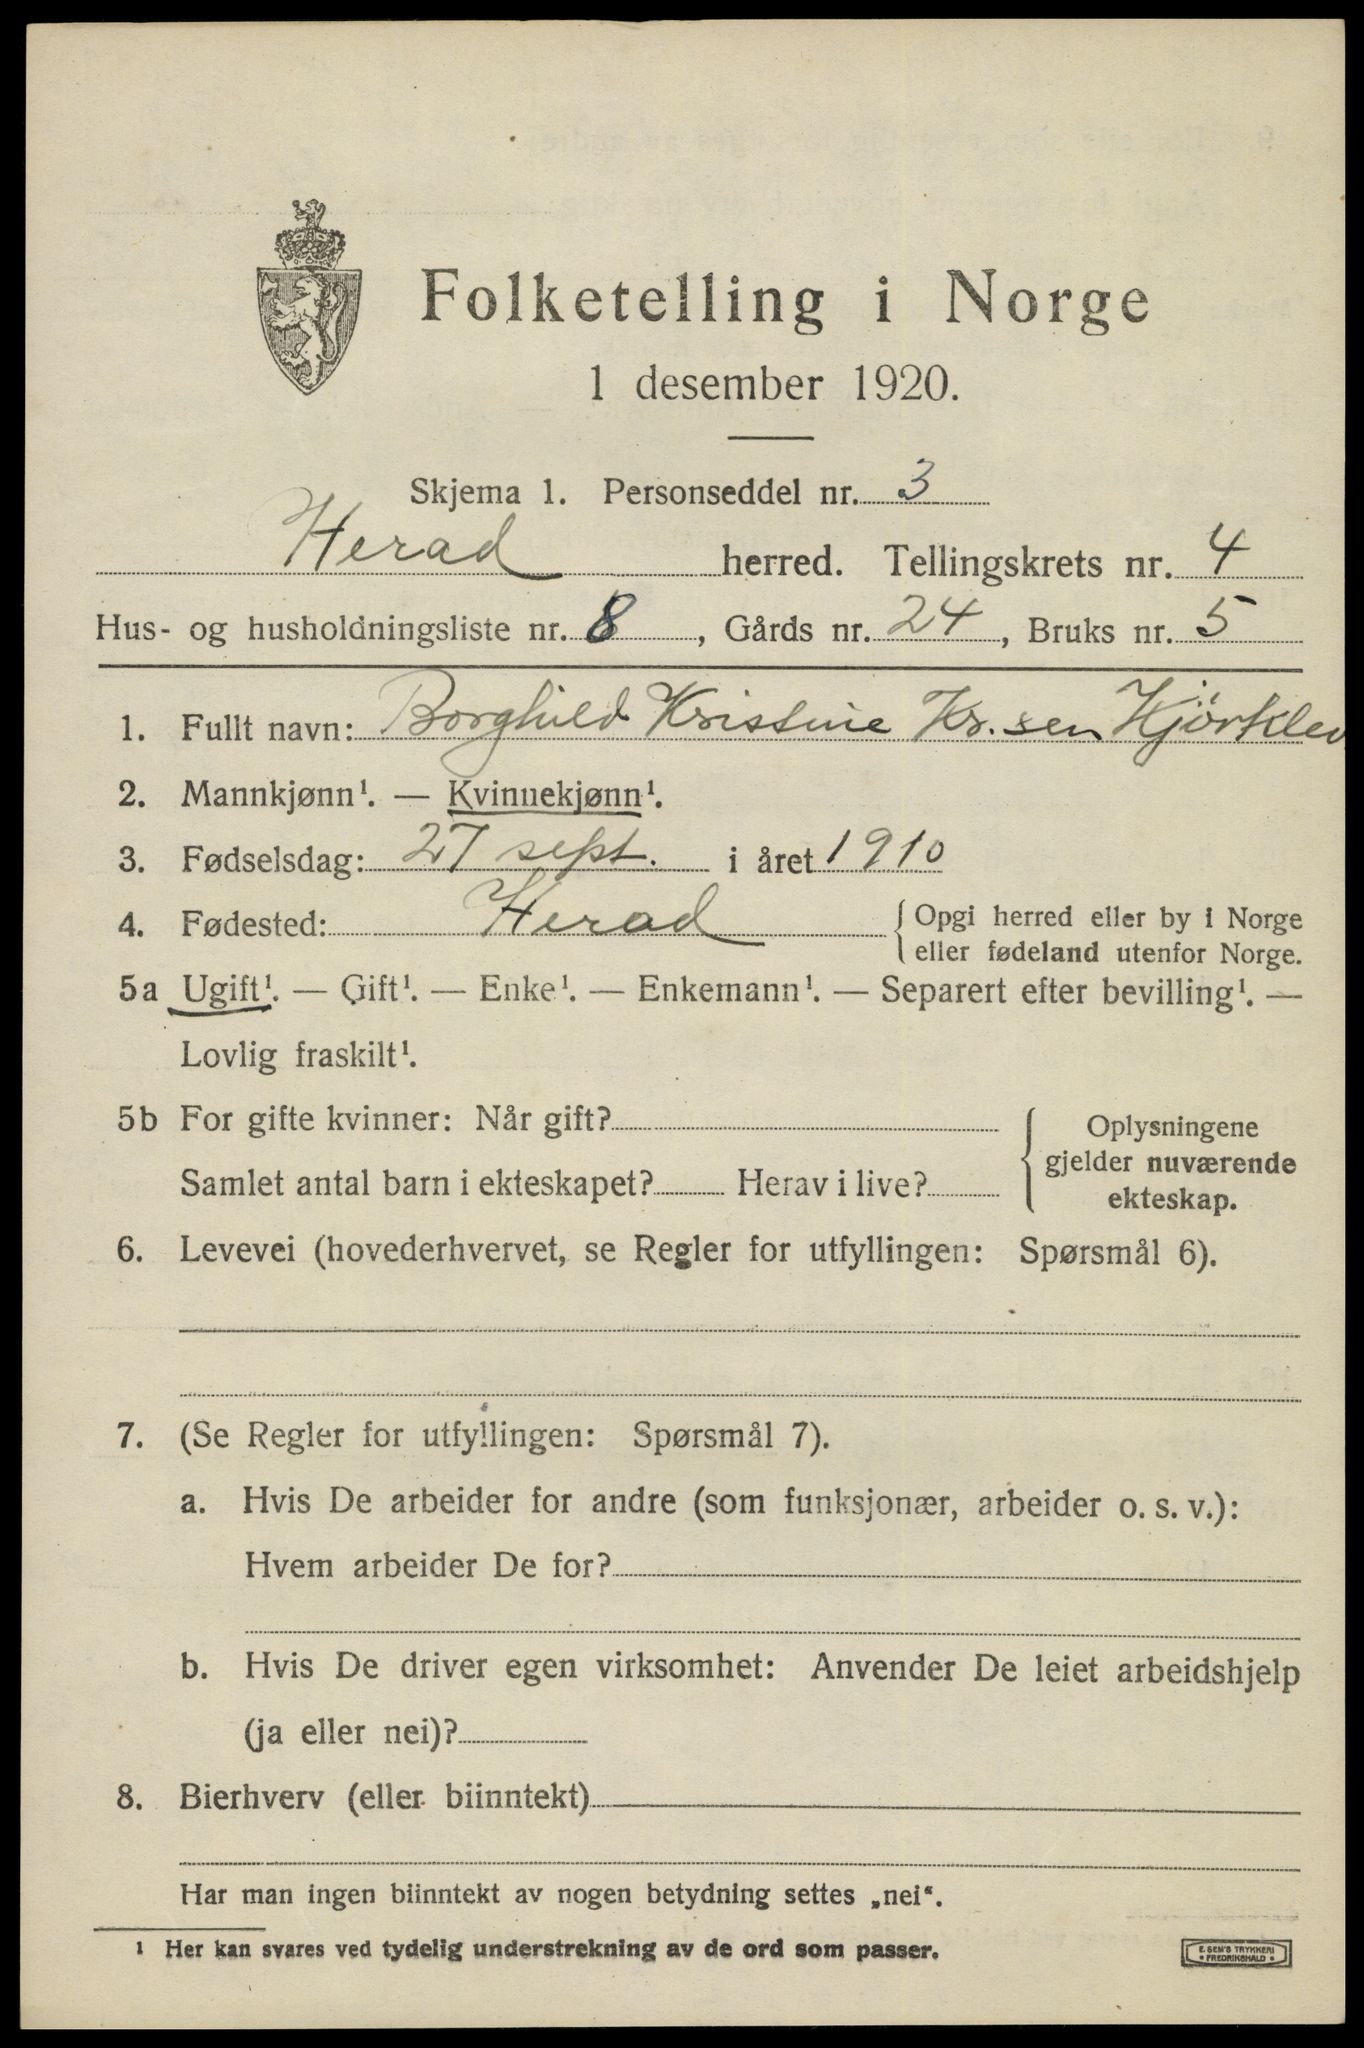 Folketelling i Norge
1 desember 1920.
Skjema 1. Personseddel nr. 3
Herad herred. Tellingskrets nr. 4
Hus- og husholdningsliste nr. 8, Gårds nr. 24, Bruks nr. 5
1. Fullt navn: Borghild Kristine Kr.sen Kjörklev
2. Mannkjønn¹. — Kvinnekjønn¹.
3. Fødselsdag: 27 sept. i året 1910
4. Fødested: Herad { Opgi herred eller by i Norge
eller fødeland utenfor Norge.
5a Ugift¹. — Gift¹. — Enke¹. — Enkemann¹. — Separert efter bevilling¹. —
Lovlig fraskilt¹.
5b For gifte kvinner: Når gift? { Oplysningene
gjelder nuværende
Samlet antal barn i ekteskapet? Herav i live?
ekteskap.
6. Levevei (hovederhvervet, se Regler for utfyllingen: Spørsmål 6).
7. (Se Regler for utfyllingen: Spørsmål 7).
a. Hvis De arbeider for andre (som funksjonær, arbeider o. s. v.):
Hvem arbeider De for?
b. Hvis De driver egen virksomhet: Anvender De leiet arbeidshjelp
(ja eller nei)?
8. Bierhverv (eller biinntekt)
Har man ingen biinntekt av nogen betydning settes „nei“.
¹ Her kan svares ved tydelig understrekning av de ord som passer.
E. SEM'S TRYKKERI
FREDRIKSHALD